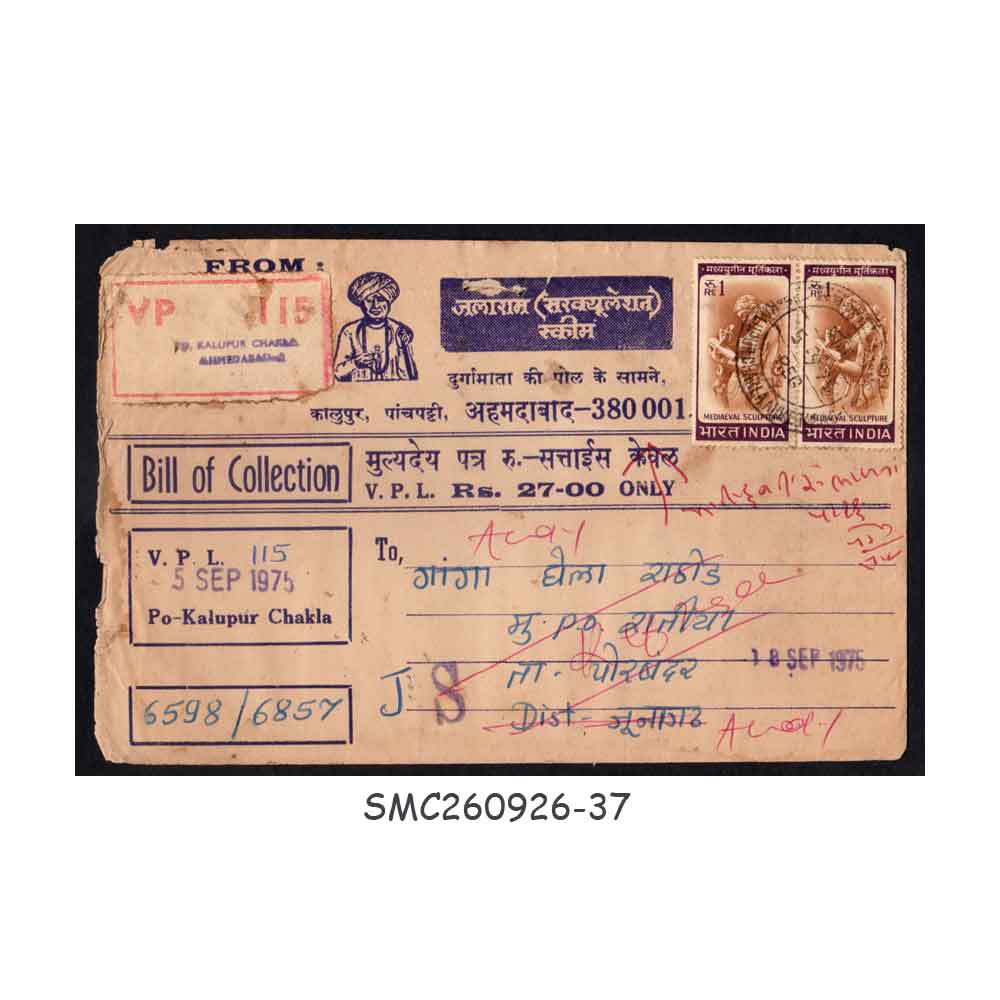 FROM :
VP 115
PO. KALUPUR CHAKLA
AHMEDABAD-2
जलाराम (सरक्यूलेशन)
स्कीम
दुर्गामाता की पोल के सामने,
कालुपुर, पांचपट्टी, अहमदाबाद-380 001.
मध्ययुगीन मूर्तिकला
रु RS 1
MEDIAEVAL SCULPTURE
भारत INDIA
मध्ययुगीन मूर्तिकला
रु RS 1
MEDIAEVAL SCULPTURE
भारत INDIA
Bill of Collection
मुल्यदेय पत्र रु.-सत्ताईस केवल
V. P. L. Rs. 27-00 ONLY
V. P. L. 115
5 SEP 1975
Po-Kalupur Chakla
6598/6857
To,
गांगा घेला राठोड
मु. P.O. रातीया
ता - पोरबंदर
18 SEP 1975
J 8
Dist - जूनागढ
SMC260926-37